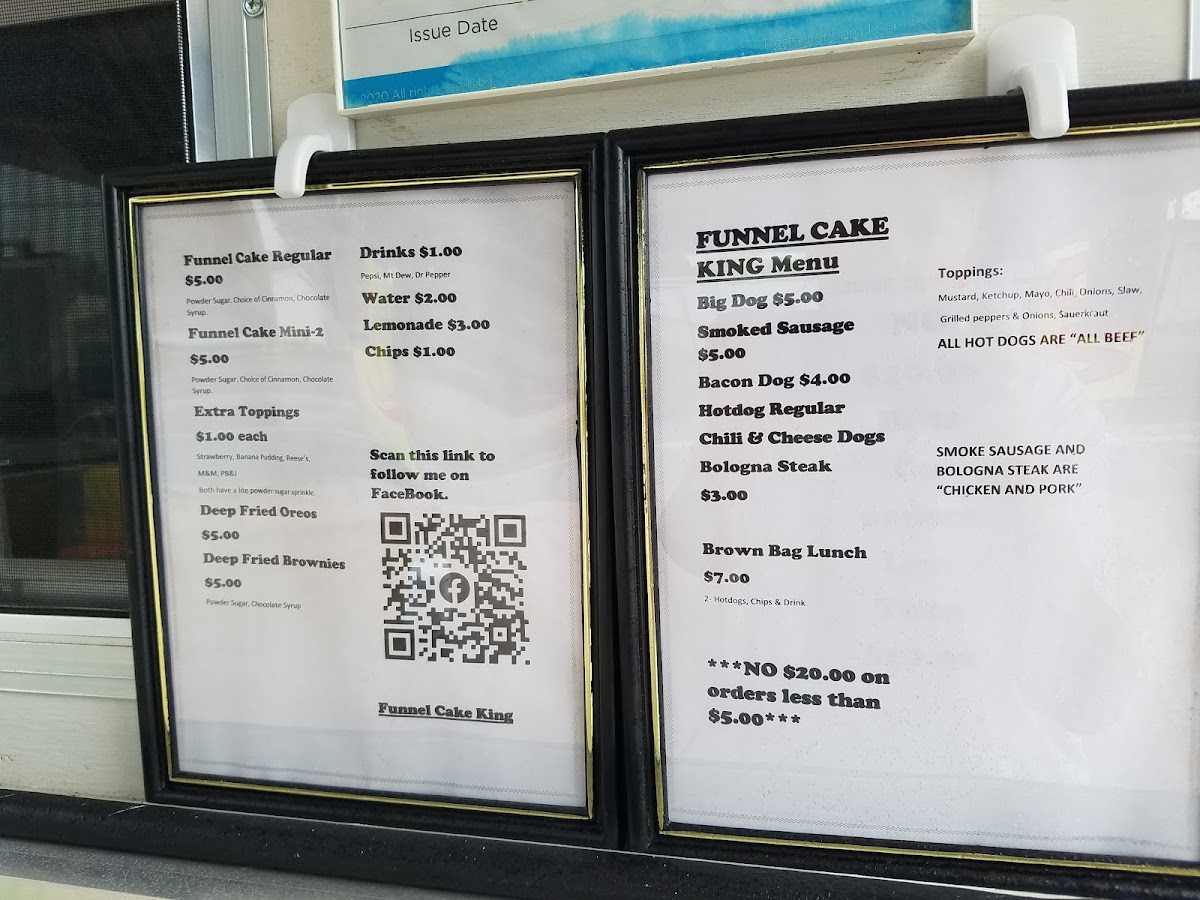 Issue Date
2020 All rights reserved.
Funnel Cake Regular
$5.00
Powder Sugar, Choice of Cinnamon, Chocolate
Syrup.
Funnel Cake Mini-2
$5.00
Powder Sugar, Choice of Cinnamon, Chocolate
Syrup.
Extra Toppings
$1.00 each
Strawberry, Banana Pudding, Reese's,
M&M, PB&J
Both have a lite powder sugar sprinkle.
Deep Fried Oreos
$5.00
Deep Fried Brownies
$5.00
Powder Sugar, Chocolate Syrup
Drinks $1.00
Pepsi, Mt Dew, Dr Pepper
Water $2.00
Lemonade $3.00
Chips $1.00
Scan this link to
follow me on
FaceBook.
Funnel Cake King
FUNNEL CAKE
KING Menu
Big Dog $5.00
Smoked Sausage
$5.00
Bacon Dog $4.00
Hotdog Regular
Chili & Cheese Dogs
Bologna Steak
$3.00
Brown Bag Lunch
$7.00
2- Hotdogs, Chips & Drink
***NO $20.00 on
orders less than
$5.00***
Toppings:
Mustard, Ketchup, Mayo, Chili, Onions, Slaw,
Grilled peppers & Onions, Sauerkraut
ALL HOT DOGS ARE "ALL BEEF"
SMOKE SAUSAGE AND
BOLOGNA STEAK ARE
"CHICKEN AND PORK"